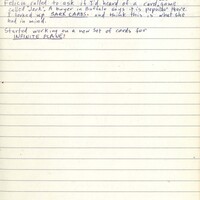 Felicia called to ask if I'd heard of a card game
called Jerk. A buyer in Buffalo says it is popular there.
I looked up BARE CARDS! and think this is what she
had in mind.
Started working on a new set of cards for
INFINITE PLAGUE!